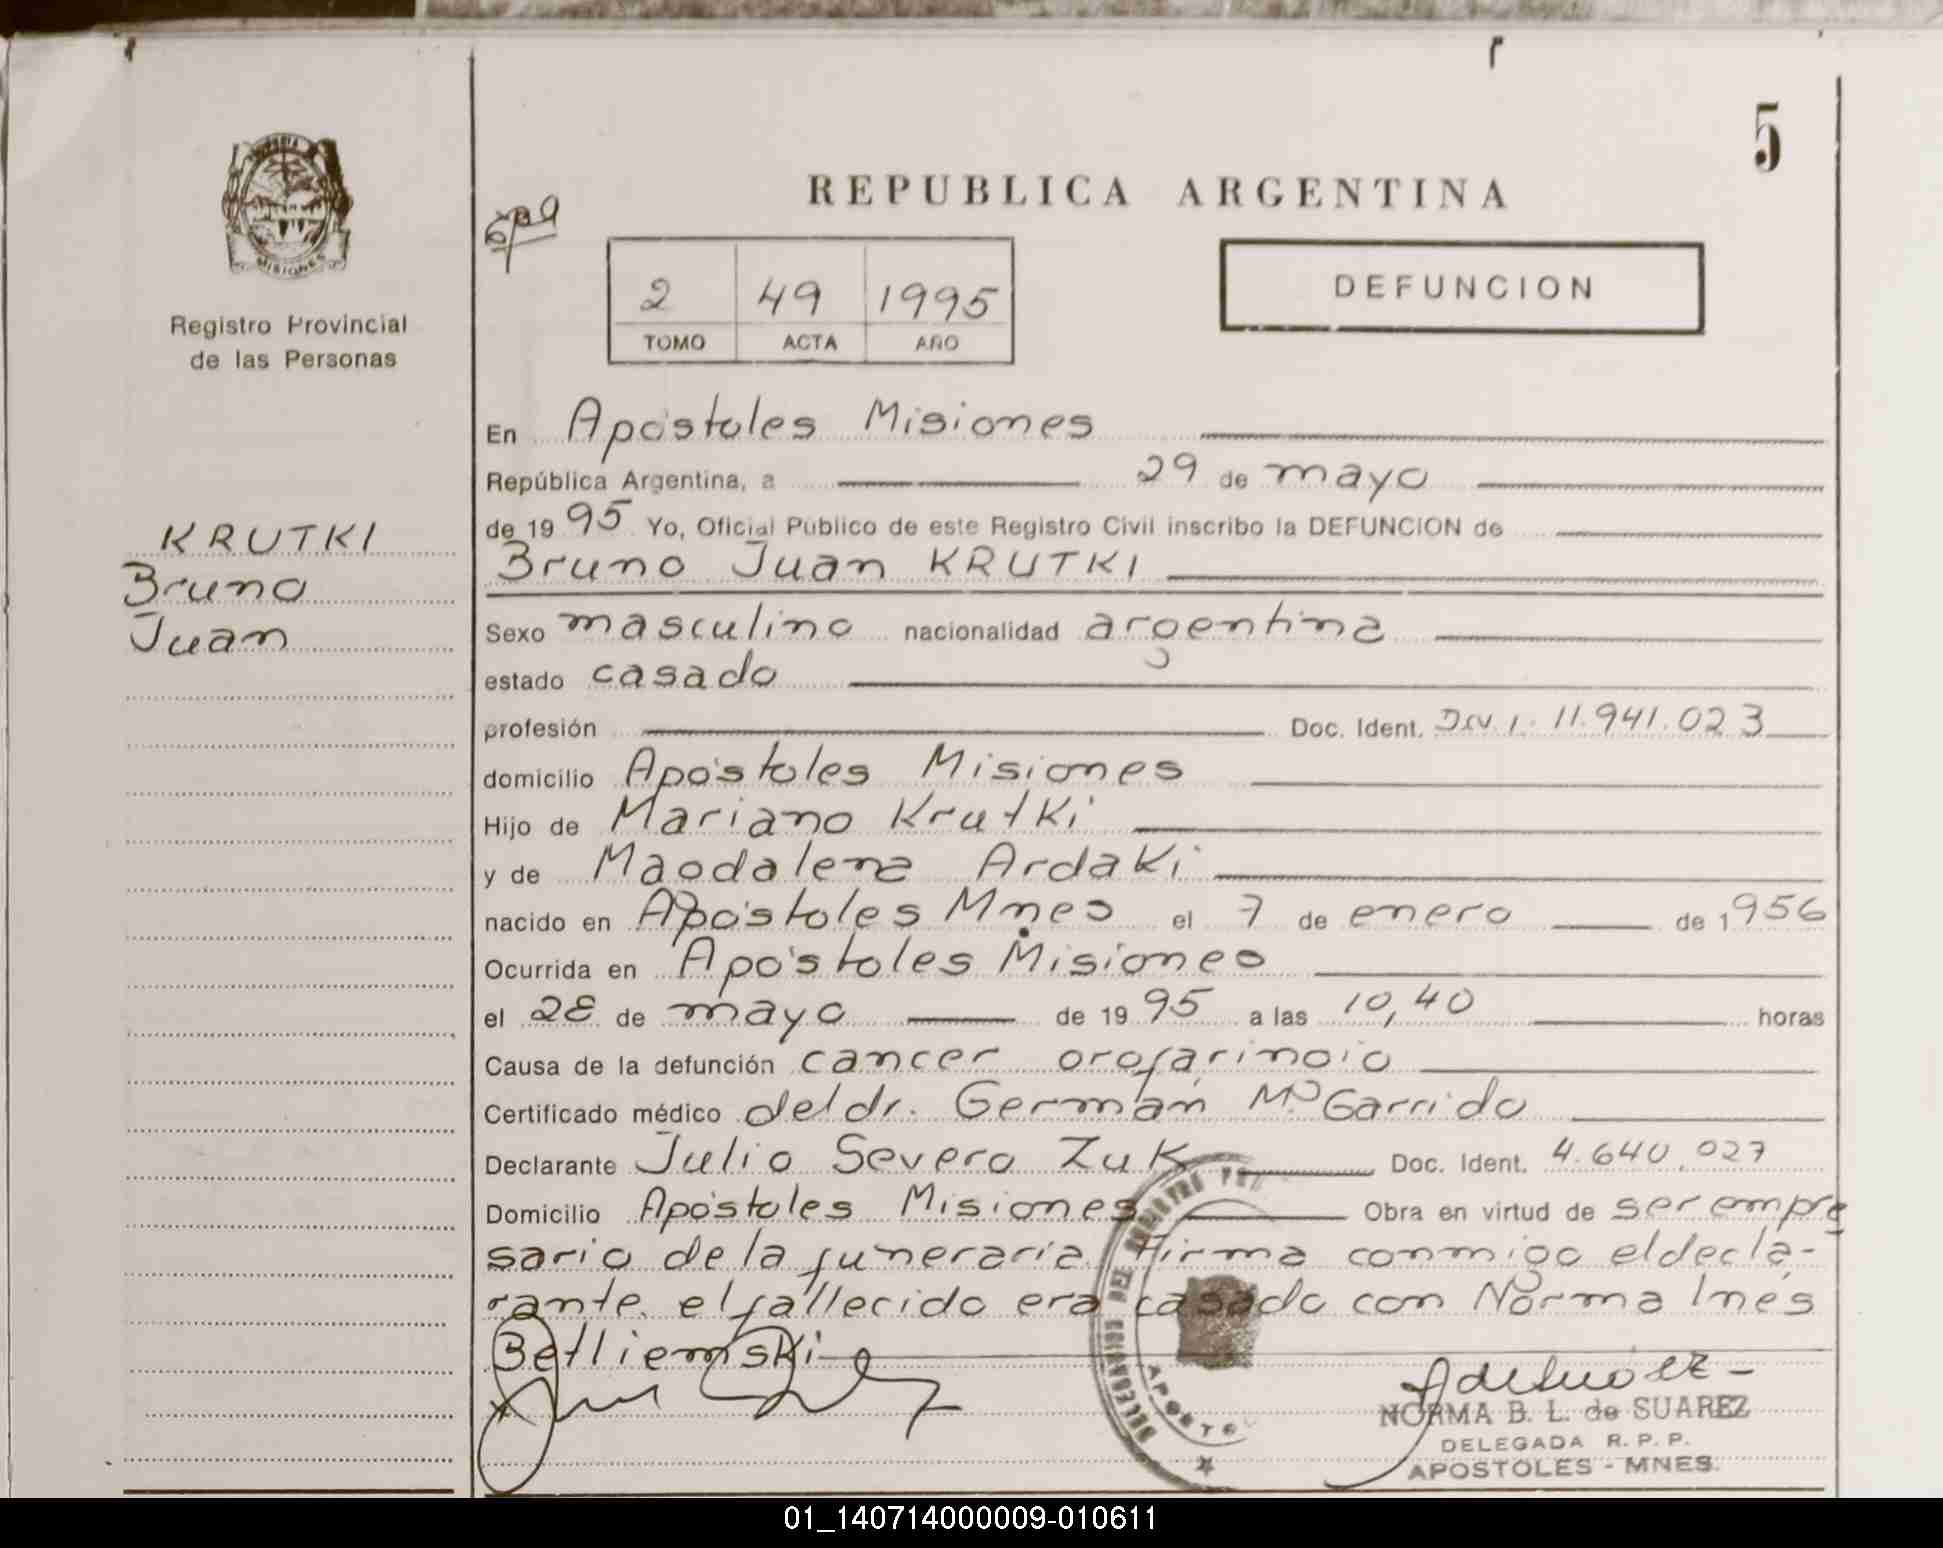 5
REPUBLICA ARGENTINA
2 49 1995
TOMO ACTA AÑO
DEFUNCION
MISIONES
Registro Provincial
de las Personas
KRUTKI
Bruno
Juan
En Apóstoles Misiones
República Argentina, a 29 de mayo
de 1995 Yo, Oficial Público de este Registro Civil inscribo la DEFUNCION de
Bruno Juan KRUTKI
Sexo masculino nacionalidad argentina
estado casado
profesión Doc. Ident. D.N.I. 11.941.023
domicilio Apóstoles Misiones
Hijo de Mariano Krutki
y de Magdalena Ardaki
nacido en Apóstoles Mnes el 7 de enero de 1956
Ocurrida en Apóstoles Misiones
el 28 de mayo de 1995 a las 10,40 horas
Causa de la defunción cancer orofaringio
Certificado médico del dr. Germán Mº Garrido
Declarante Julio Severo Zuk Doc. Ident. 4.640.027
Domicilio Apóstoles Misiones Obra en virtud de ser empre
sario de la funeraria. Firma conmigo el decla-
rante. el fallecido era casado con Norma Inés
Betliemski
NORMA B. L. de SUAREZ
DELEGADA R. P. P.
APOSTOLES - MNES.
01_140714000009-010611